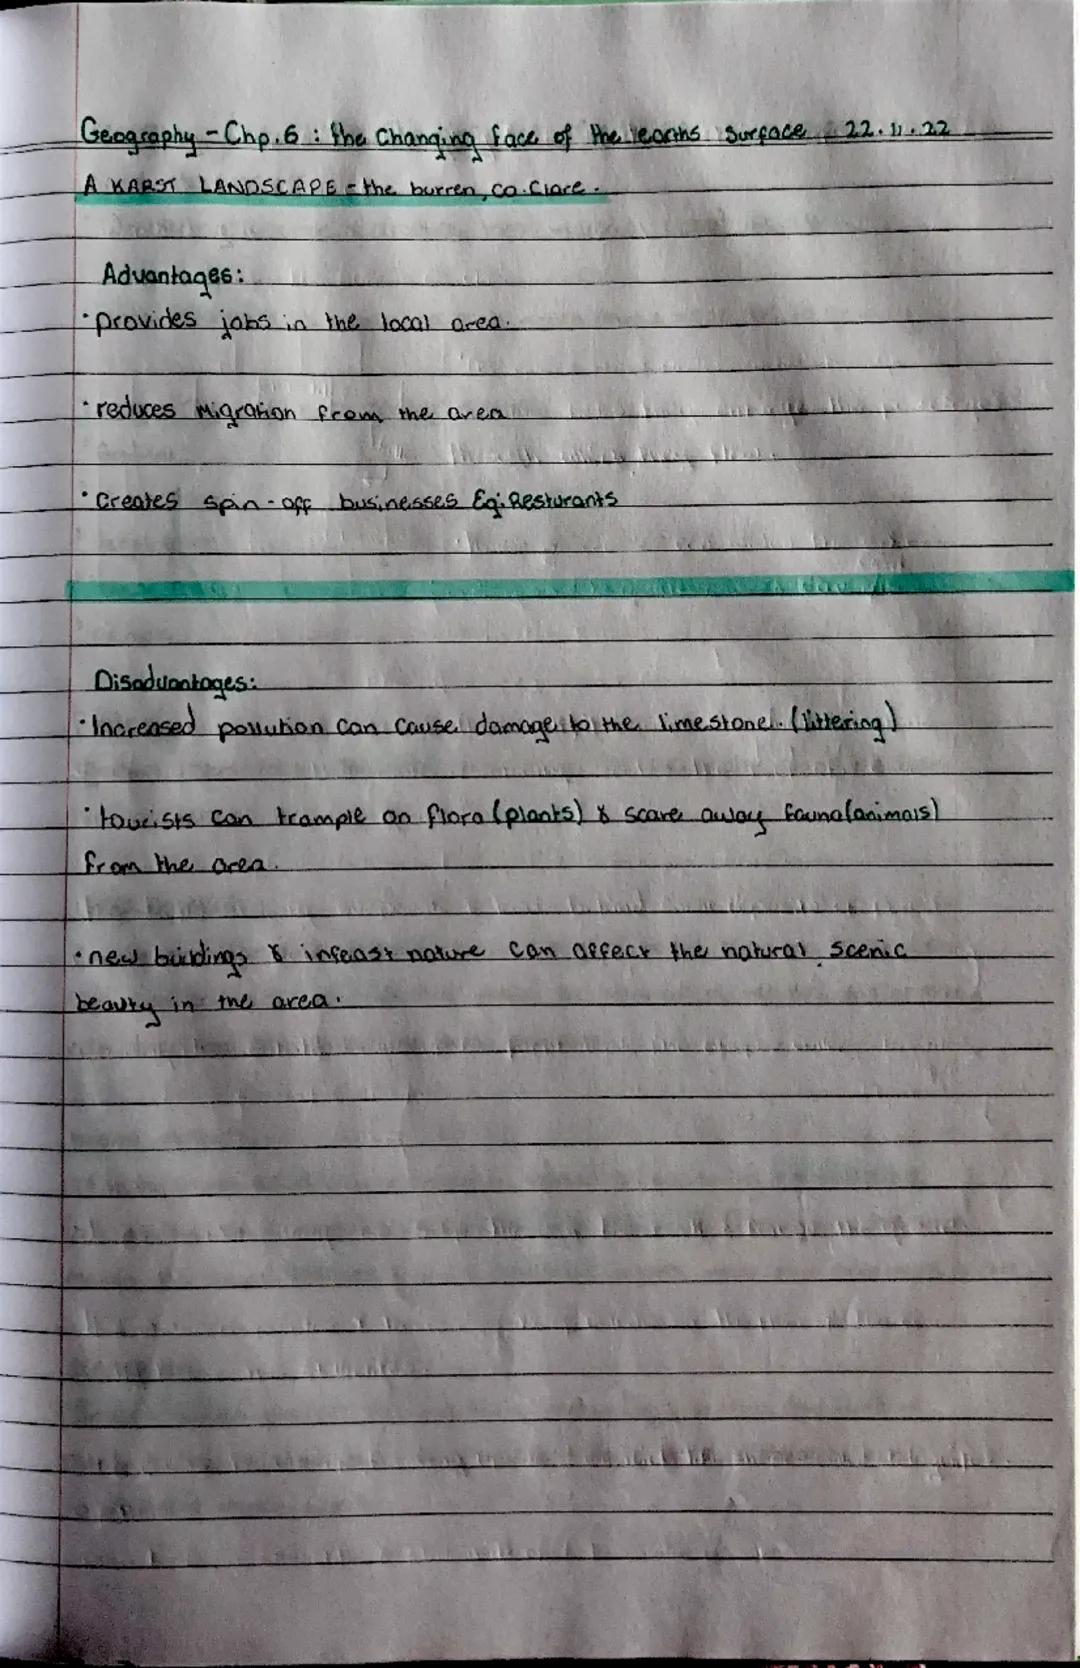 Geography - Chp.6 : the Changing face of the earths surface 22.11.22
A KARST LANDSCAPE = the burren, co. Clare.
Advantages:
· provides jobs in the local area.
· reduces Migration from the area
· Creates spin-off businesses Eg: Resturants
Disadvantages:
· Increased pollution can cause damage to the limestone. (littering)
· tourists can trample on flora (plants) & scare away fauna (animals)
from the area.
· new buildings & infeast nature can affect the natural scenic
beauty in the area.